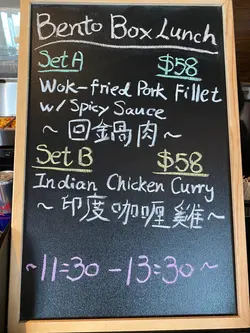 Bento Box Lunch
Set A $58
Wok-fried Pork Fillet
w/ Spicy Sauce
~ 回鍋肉 ~
Set B $58
Indian Chicken Curry
~ 印度咖喱雞 ~
~ 11:30 - 13:30 ~